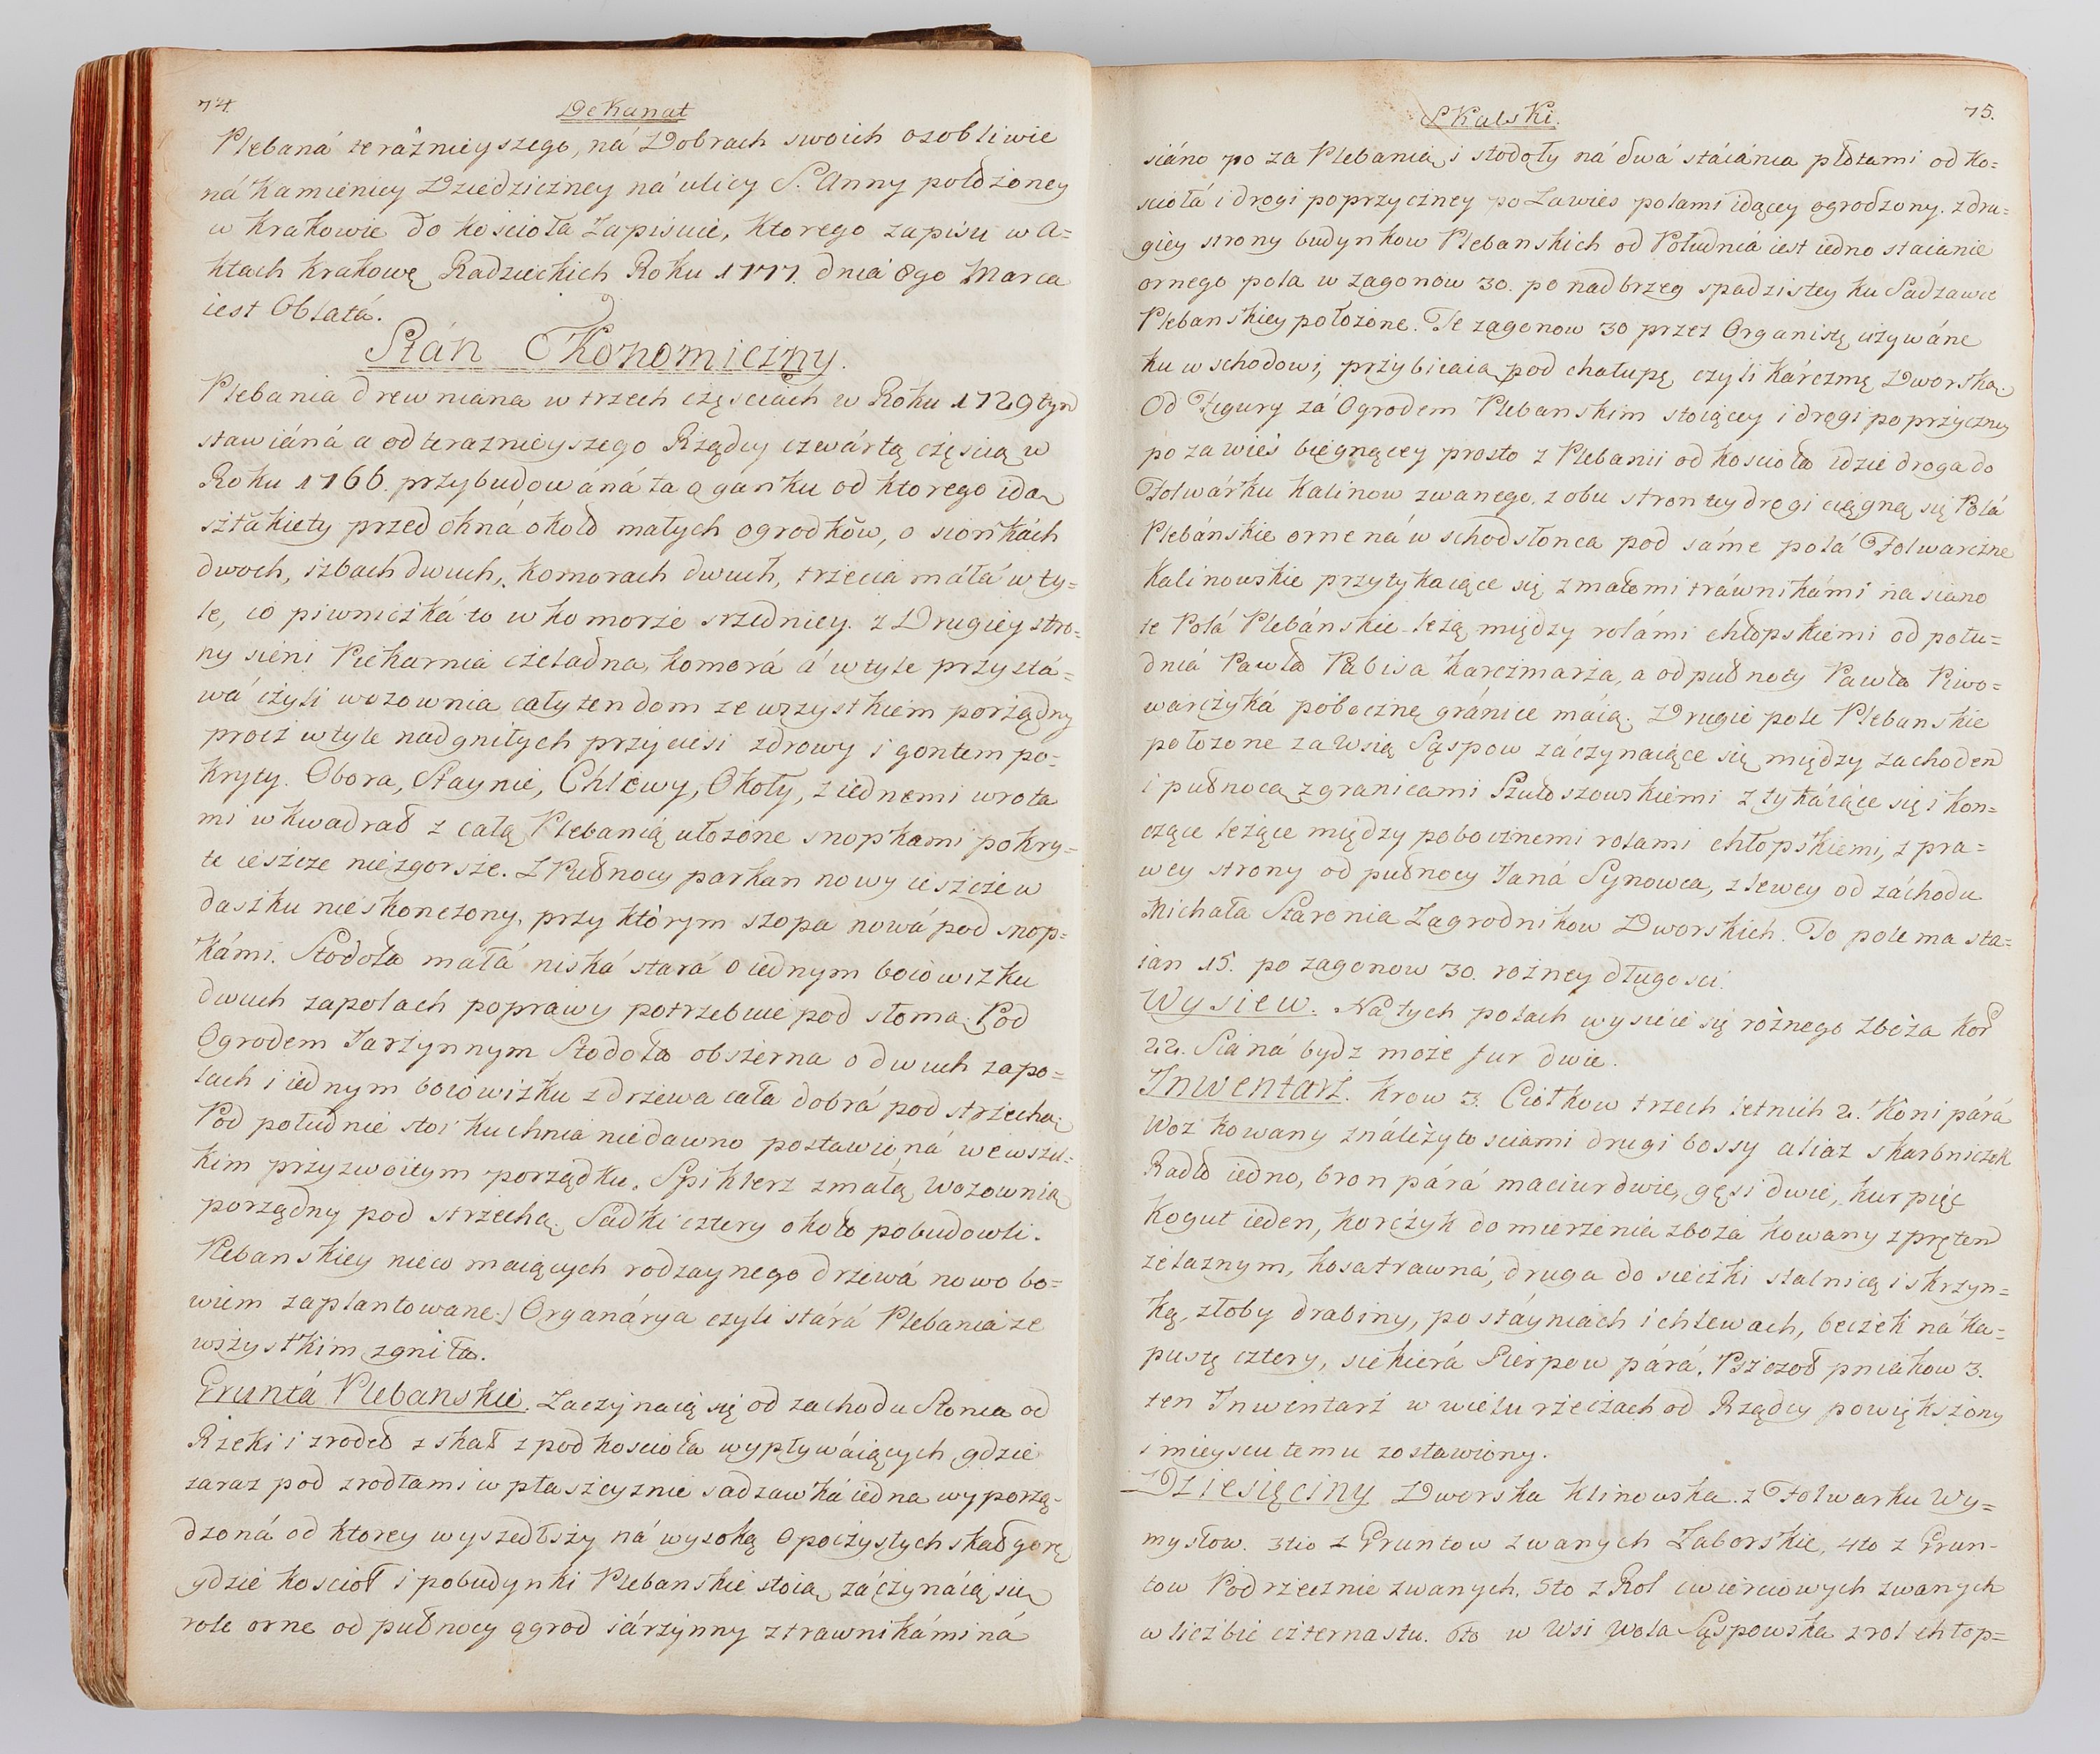 74.
Dekanat
Plebaná teráznieyszego, ná Dobrach swoich osobliwie
ná kamienicy Dziedziczney ná ulicy S. Anny położoney
w Krakowie do kościoła Zapisuie, ktorego zapisu w A=
ktach krakowę Radzieckich Roku 1777. dniá 8go Marca
iest Oblatá.
Stán Okonomiczny.
Plebania drewniana w trzech częściach w Roku 1729tym
stawiáná a od teraznieyszego Rządcy czwártą częscią w
Roku 1766. przybudowáná ta o ganku od ktorego idą
sztákiety przed okná około małych ogrodków, o sionkách
dwoch, izbach dwuch, komorach dwuch, trzecia máłá w ty=
le, co piwniczká to w komorze srzedniey. z Drugiey stro=
ny sieni Piekarnia czeladna, komorá á w tyle przystá=
wá czyli wozownia cały ten dom ze wszystkiem porządny
procz w tyle nadgniłych przyciesi zdrowy i gontem po=
kryty. Obora, Staynie, Chlewy, Okoły, z iednemi wrota
mi w kwadrat z całą Plebanią ułożone snopkami pokry=
te ieszcze niezgorsze. Z Pułnocy parkan nowy ieszcze w
daszku nieskonczony, przy którym szopa nowá pod snop=
kámi. Stodoła máłá niská stará o iednym boiowizku
dwuch zapolach poprawy potrzebuie pod słomą. Pod
Ogrodem Jarzynnym Stodoła obszerna o dwuch zapo=
lach i iednym boiowizku z drzewa cała dobrá pod strzechą
Pod południe stoi kuchnia niedawno postawioná we wszel=
kim przyzwoitym porządku. Spiklerz z małą Wozownią
porządny pod strzechą. Sadki cztery około pobudowli.
Plebanskiey nieco maiących rodzaynego drzewá nowo bo=
wiem zaplantowane.) Organárya czyli stárá Plebania ze
wszystkim zgniła.
Gruntá Plebanskie. Zaczynaią się od zachodu Słonca od
Rzeki i zrodeł z skał z pod kościoła wypływáiących, gdzie
zaraz pod zrodłami w płaszczyznie sadzawká iedna wyporzą=
dzoná od ktorey wyszedłszy ná wysoką Opoczystych skał gorę
gdzie kosciół i pobudynki Plebanskie stoią, záczynáią się
role orne od pułnocy ogrod iárzynny z trawnikámi ná
Skalski.
75.
siáno po za Plebanią i stodoły ná dwá stáiánia płotami od ko=
ściołá i drogi poprzyczney po Zawies polami idącey ogrodzony. z dru=
giey strony budynkow Plebanskich od Południá iest iedno staianie
ornego pola w zagonow 30. po nad brzeg spadzistey ku Sadzawce
Plebanskiey położone. Te zagonow 30 przez Organistę używáne
ku wschodowi, przybieraią pod chałupę czyli kárczmę Dworską.
Od Figury zá Ogrodem Plebanskim stoiącey i drogi poprzyczney
po za wieś biegnącey prosto z Plebanii od kościoła idzie droga do
Folwárku Kalinow zwanego, z obu stron tey drogi ciągną się Polá
Plebánskie orne ná wschod słonca pod sáme polá Folwarczne
Kalinowskie przytykaiące się z małemi tráwnikámi na siano
te Polá Plebánskie leżą między rolámi chłopskiemi od połu=
dniá Pawła Pabisa karczmarza, a od pułnocy Pawła Piwo=
warczyká poboczne gránice máią. Drugie pole Plebanskie
położone za Wsią Sąspow záczynaiące się między zachodem
i pułnocą z granicami Szułoszowskiemi z tykáiące się i kon=
czące leżące między pobocznemi rolami chłopskiemi, z pra=
wey strony od pułnocy Janá Synowca, z lewey od záchodu
Michała Staronia Zagrodnikow Dworskich. To pole ma sta=
ian 15. po zagonow 30. rożney długosci.
Wysiew. Na tych polach wysieie się różnego zboża kor
22. Sianá bydz może fur dwie.
Inwentarz. Krow 3. Ciołkow trzech letnich 2. Koni párá
Woz kowany z náleżytosciami drugi bossy aliaz skarbniczek
Radło iedno, bron párá maciur dwie, gęsi dwie, kur pięć
kogut ieden, korczyk do mierzenia zboża kowany z prętem
żelaznym, kosa trawná, druga do sieczki stalnicą i skrzyn=
ką, złoby drabiny, po stáyniach i chlewach, beczek ná ka=
pustę cztery, siekierá Sierpow párá. Pszczoł pniakow 3.
ten Inwentarz w wielu rzeczach od Rządcy powiększony
i mieyscu temu zostawiony.
Dziesięciny Dworska klinowska. z Folwarku Wy=
mysłow. 3tio z Gruntow zwanych Zaborskie, 4to z Grun=
tow Podrzecznie zwanych. 5to z Rol cwierciowych zwanych
w liczbie czternastu. 6to w Wsi Wola Sąspowska z rol chłop=